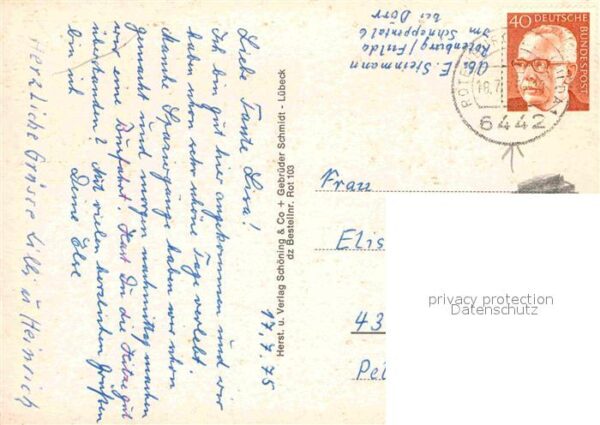 Abs. E. Steinmann
Rotenburg/Fulda
Im Schneppental 6
bei Dörr
40 DEUTSCHE BUNDESPOST
6442
17.7.75
Liebe Tante Lisa!
Ich bin gut hier angekommen und wir
haben schon sehr schöne Tage verlebt.
Manche Spaziergänge haben wir schon
gemacht und morgen nachmittag machen
wir eine Busfahrt. Hast Du die Hitze gut
überstanden? Mit vielen herzlichen Grüßen
bin ich Deine Else
Herzliche Grüsse Lilli u Heinrich
Herst. u. Verlag Schöning & Co + Gebrüder Schmidt - Lübeck
dz Bestellnr. Rot 103
Frau
Elis
43
Pe
privacy protection
Datenschutz